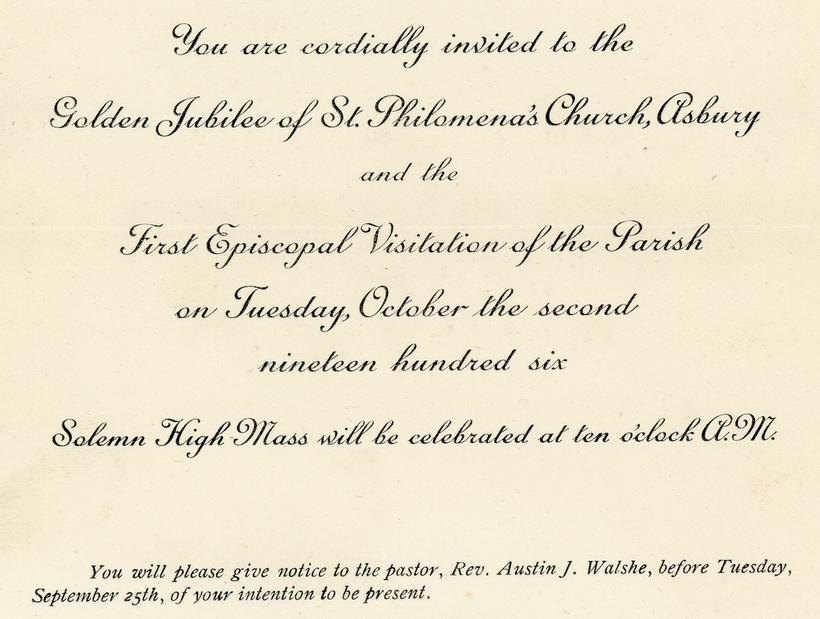 You are cordially invited to the
Golden Jubilee of St. Philomena's Church, Asbury
and the
First Episcopal Visitation of the Parish
on Tuesday, October the second
nineteen hundred six
Solemn High Mass will be celebrated at ten o'clock A.M.
You will please give notice to the pastor, Rev. Austin J. Walshe, before Tuesday,
September 25th, of your intention to be present.